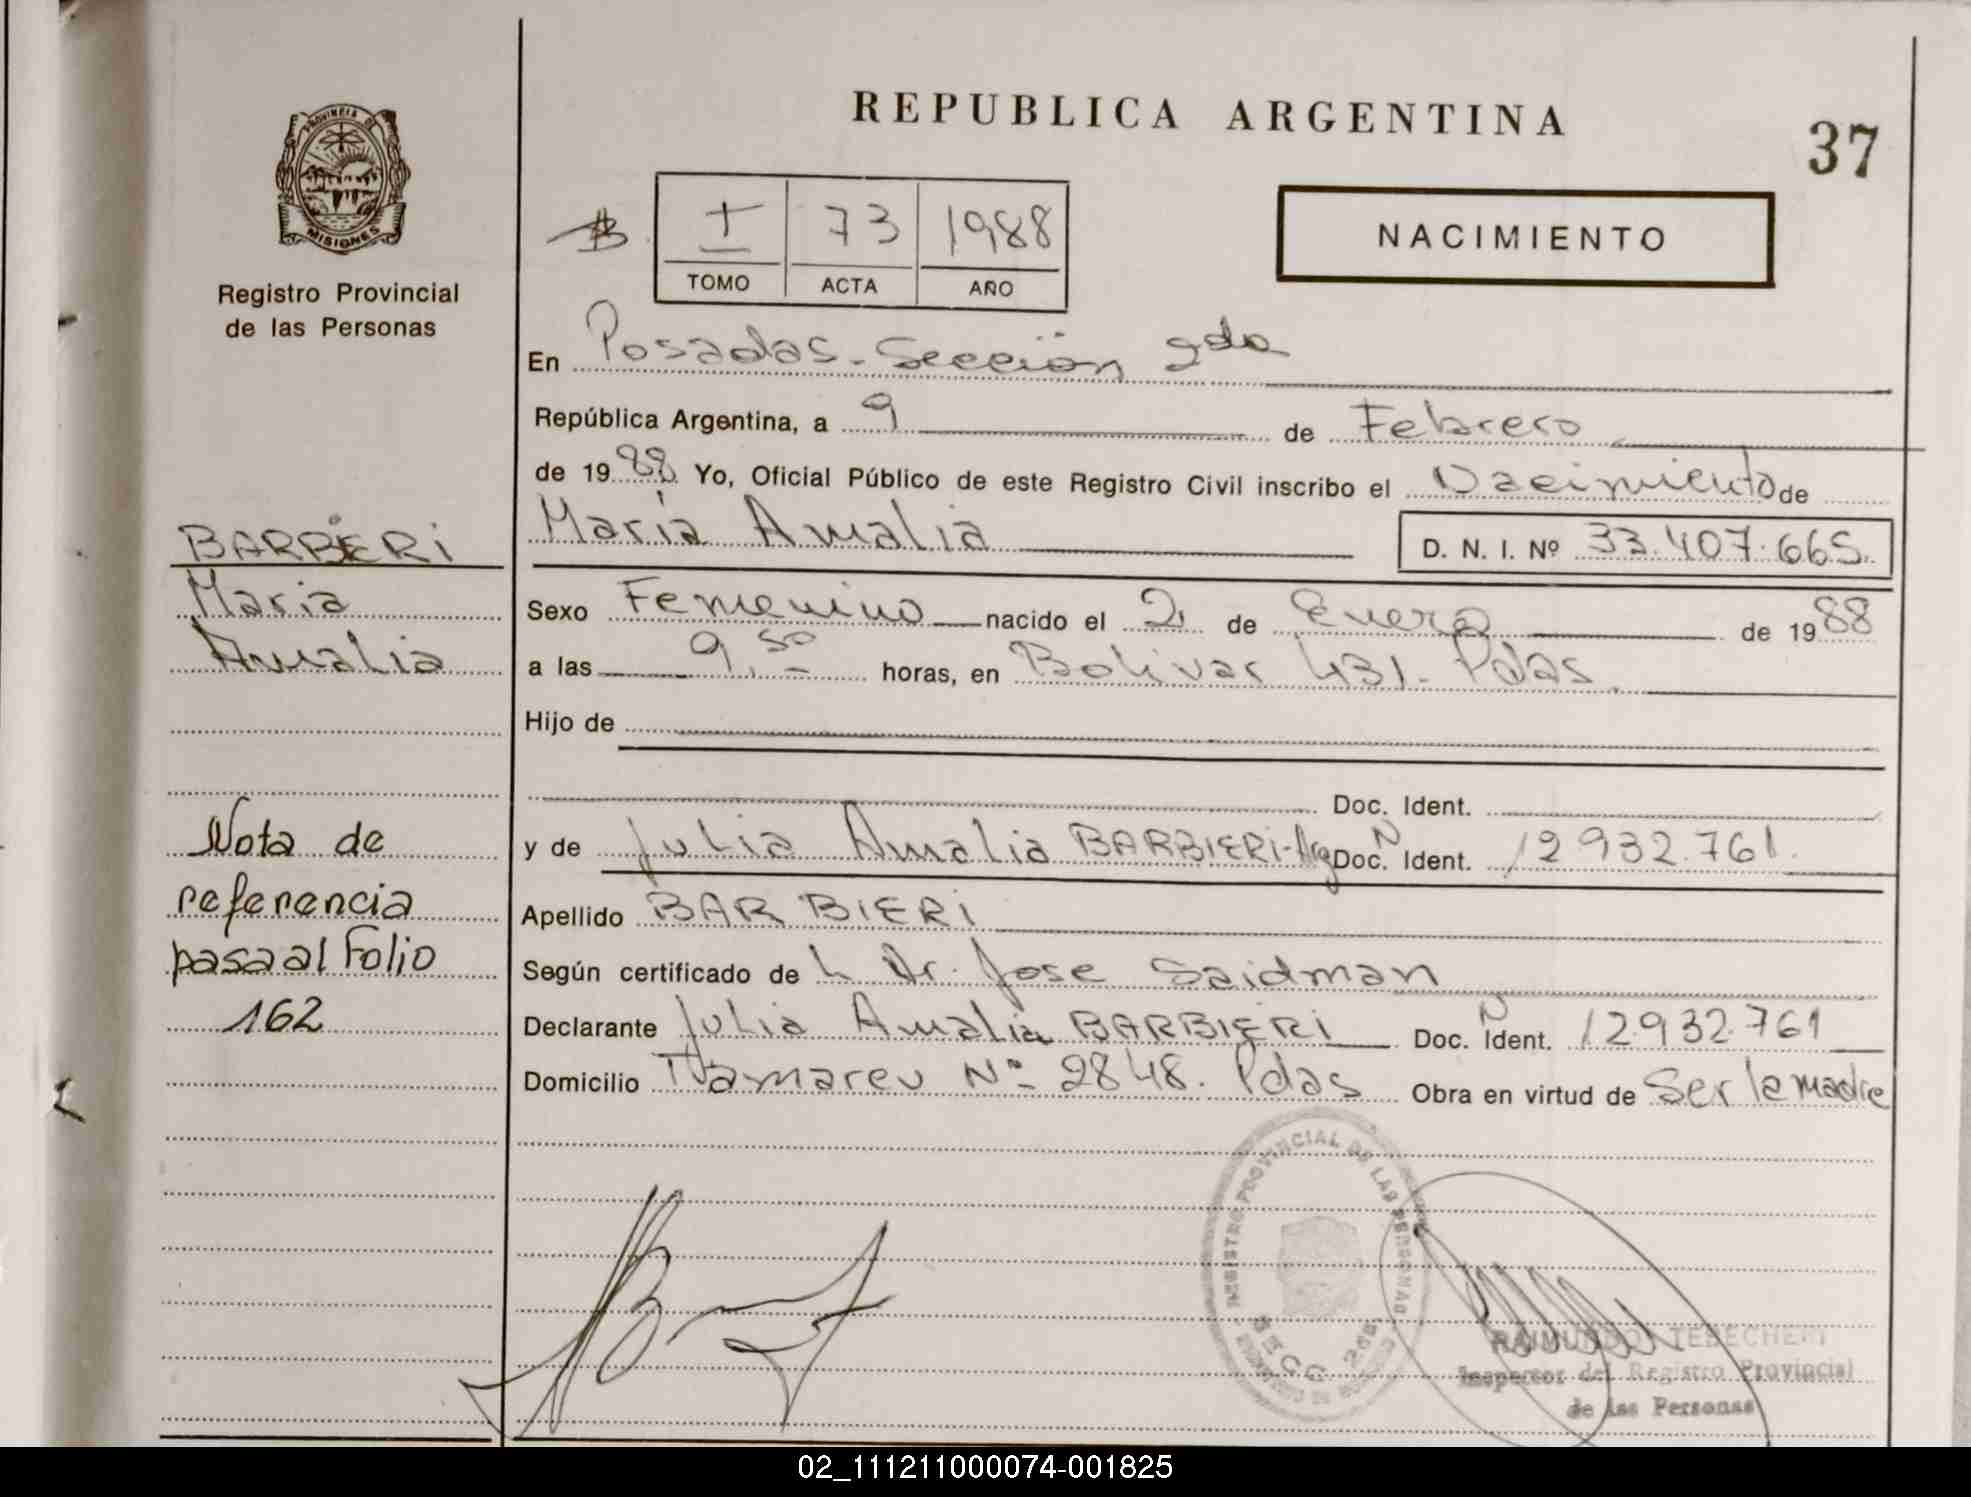 REPUBLICA ARGENTINA
37
PROVINCIA DE
MISIONES
Registro Provincial
de las Personas
I
73
1988
TOMO
ACTA
AÑO
NACIMIENTO
En Posadas - Sección 2da
República Argentina, a 9 de Febrero
de 1988 Yo, Oficial Público de este Registro Civil inscribo el Nacimiento de
María Amalia D. N. I. Nº 33.407.665.
Sexo Femenino nacido el 2 de Enero de 1988
a las 9,50 horas, en Bolivar 431. Pdas.
Hijo de
Doc. Ident.
y de Julia Amalia BARBIERI-Arg Doc. Ident. N 12932.761.
Apellido BARBIERI
Según certificado de L Dr. Jose Saidman
Declarante Julia Amalia BARBIERI Doc. Ident. N 12932.761
Domicilio Nº 2848. Pdas Obra en virtud de Ser la madre
BARBIERI
Maria
Amalia
Nota de
referencia
pasa al Folio
162
REGISTRO PROVINCIAL DE LAS PERSONAS
SECC. 2da
RAIMUNDO TEDECHERI
Inspector del Registro Provincial
de las Personas
02_111211000074-001825